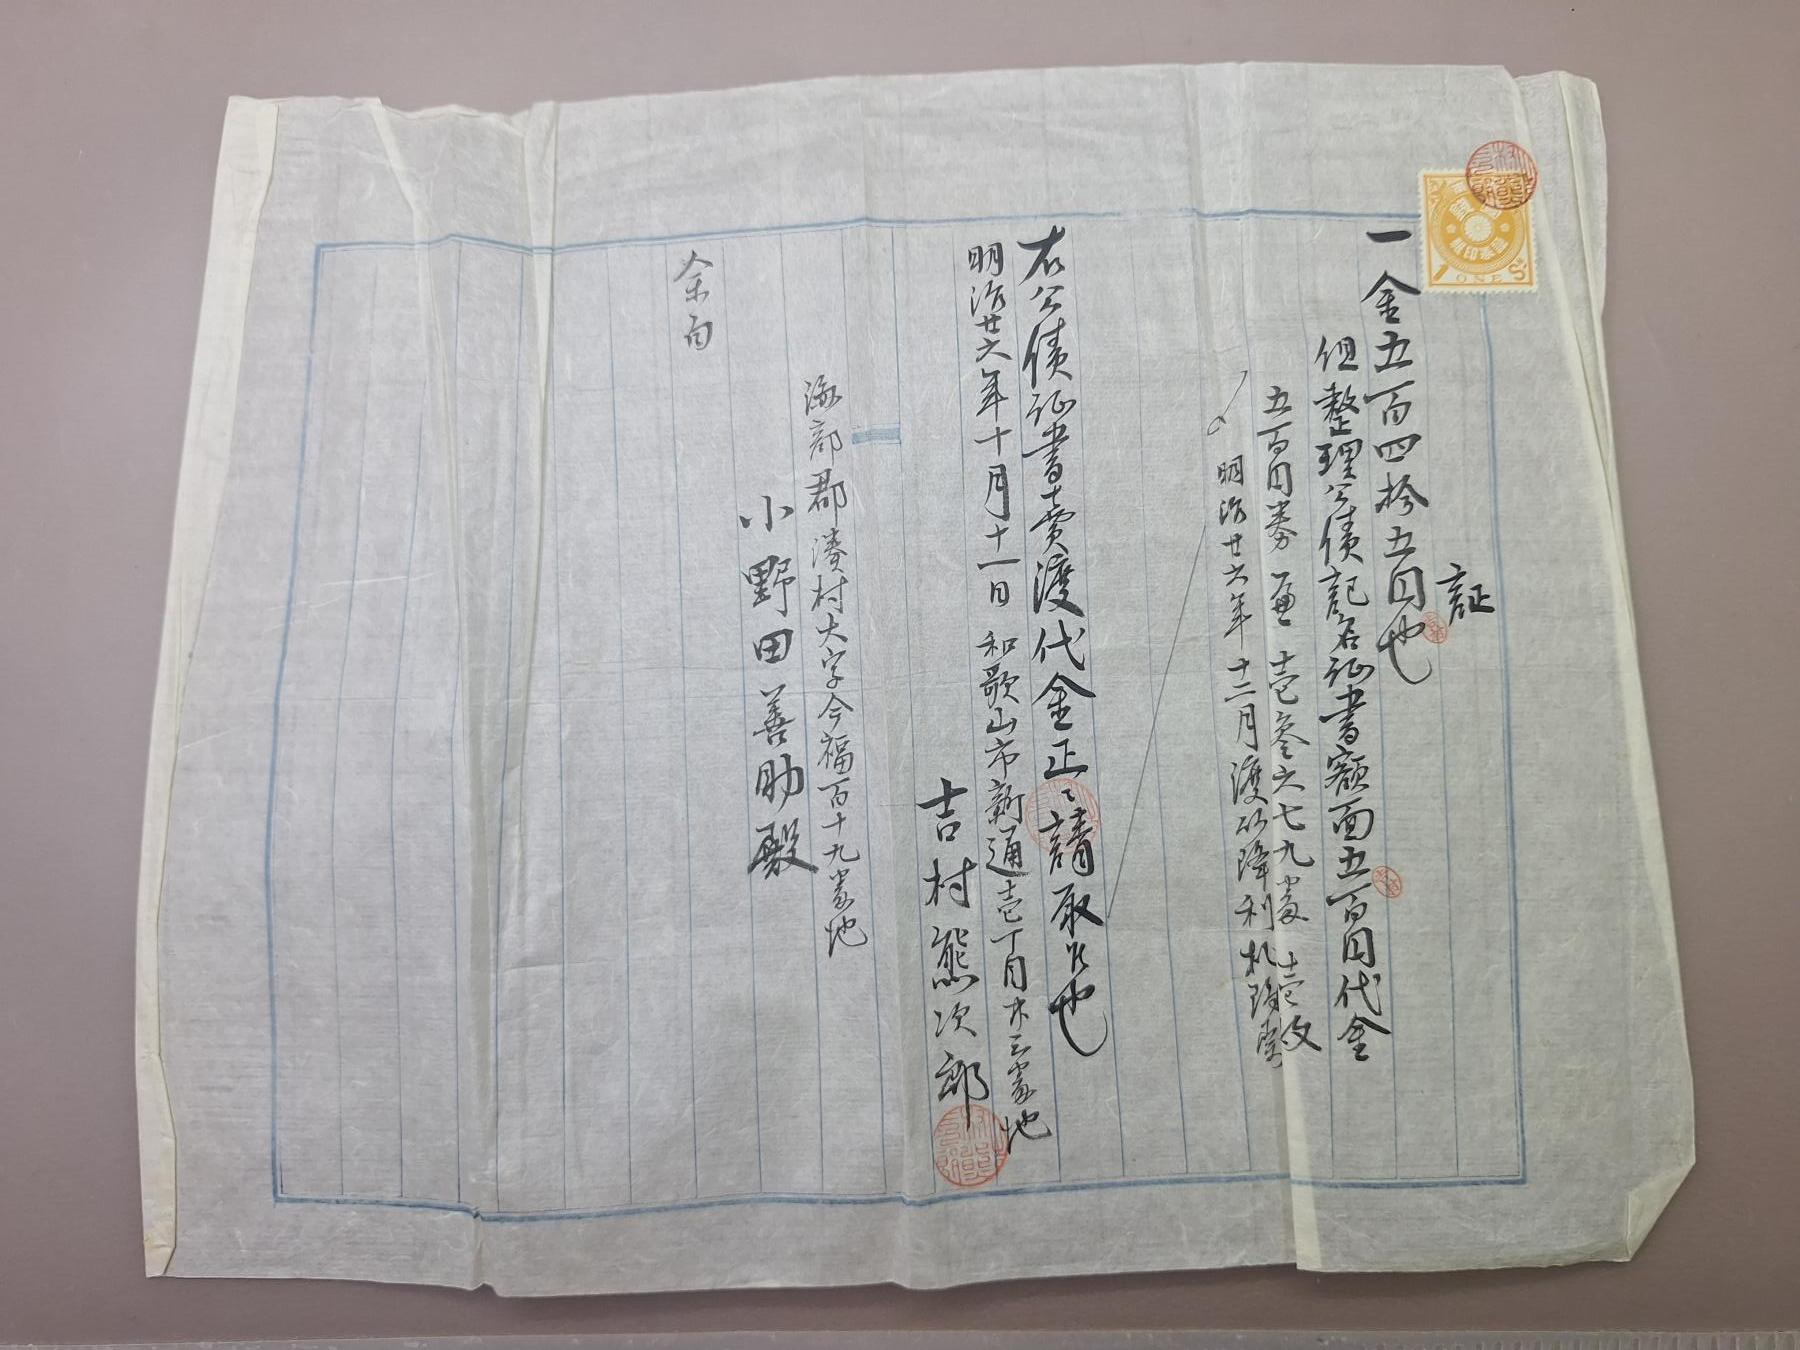 証
一金五百四拾五円也
但整理公債記名証書額面五百円代金
五百円券 壱参六七九番 壱枚
明治廿六年十二月渡以降利札
右公債証書売渡代金正ニ請取候也
明治廿六年十月十一日
和歌山市新通壱丁目廿三番地
吉村熊次郎
海部郡湊村大字今福百十九番地
小野田善助殿
余白
證券印紙
1 ONE Sⁿ